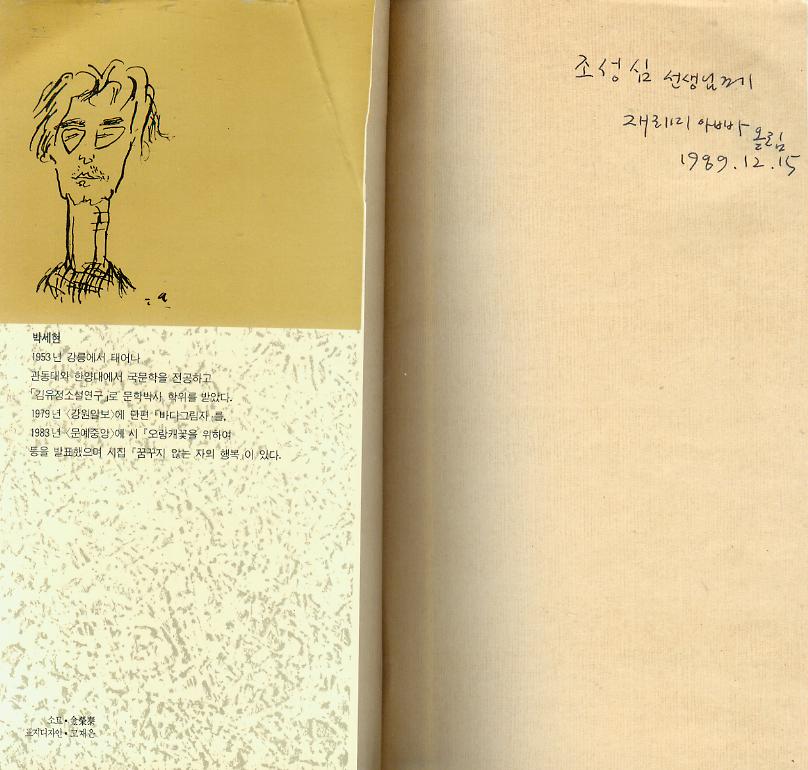 박세현
1953년 강릉에서 태어나
관동대와 한양대에서 국문학을 전공하고
「김유정소설연구」로 문학박사 학위를 받았다.
1979년 〈강원일보〉에 단편 「바다그림자」를,
1983년 〈문예중앙〉에 시 「오랑캐꽃을 위하여
등을 발표했으며 시집 「꿈꾸지 않는 자의 행복」이 있다.
소묘 • 金榮泰
표지디자인 •
조성심 선생님께
아빠 올림
1989.12.15